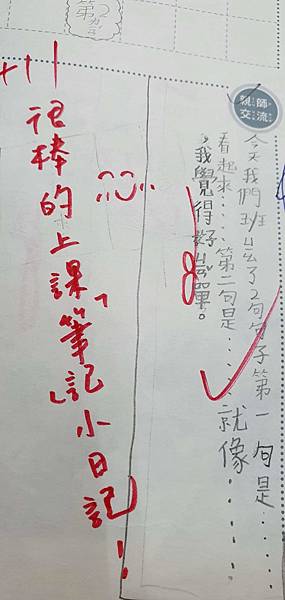 第2
親師交流
今天我們班了2句句子第一句是……
看起來……第二句是……就像……
,我覺得好ㄐㄧㄢˇ單。
+11
很棒的上課「筆記」小日記!